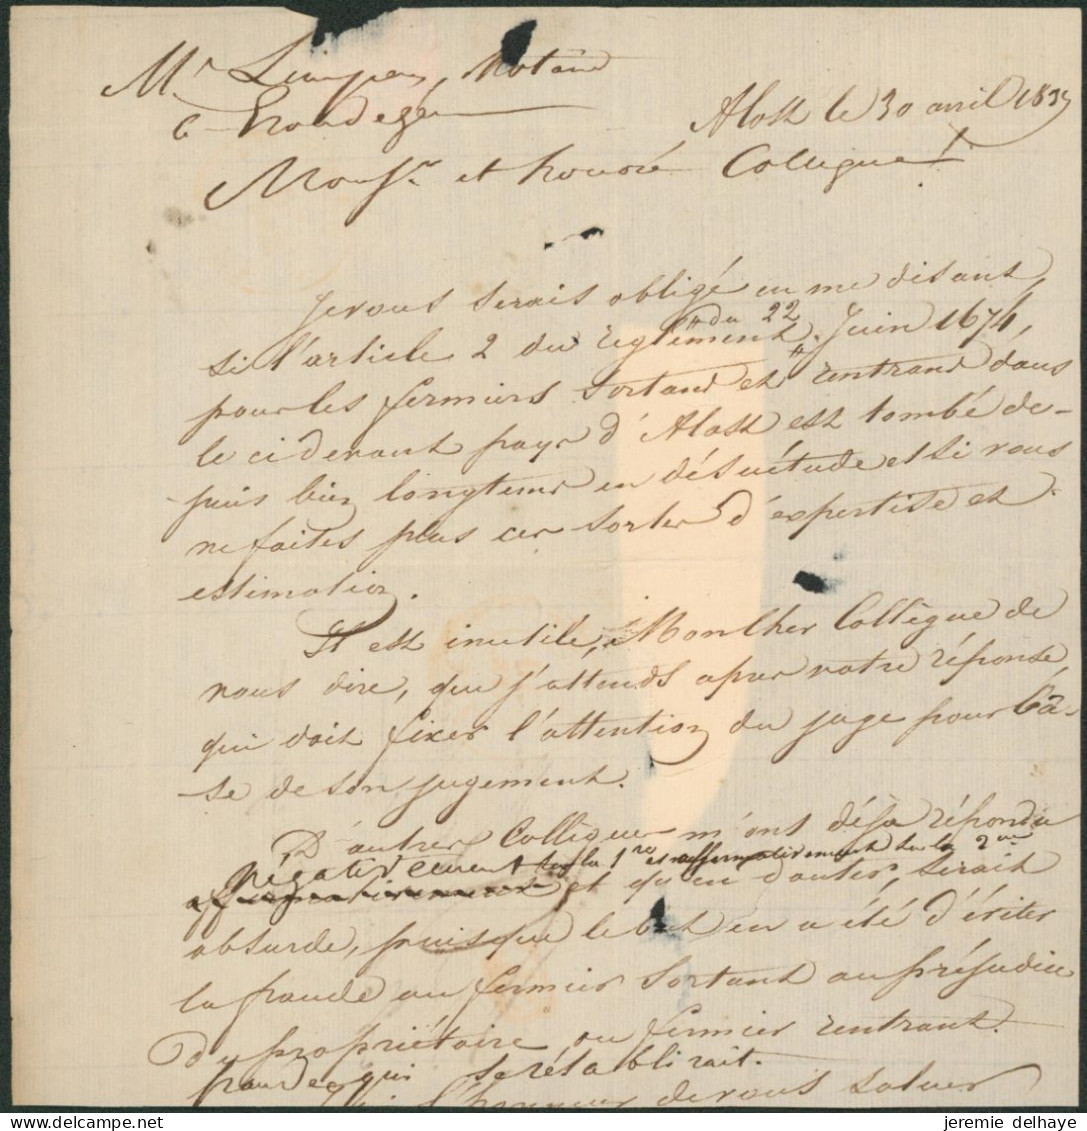 Mr Limpens, Notaire
à
Alost le 30 avril 1835
Monsr et honoré Collègue
Je vous serais obligé en me disant,
si l'article 2 du reglement du 22 Juin 1674,
pour les fermiers sortand et rentrand dans
le cidevant pays d'Alost est tombé de-
puis bien longtems en désuétude et si vous
ne faites plus ces sortes d'éxpertise et
estimation.
Il est inutile, Mon Cher Collègue de
vous dire, que j'attends après votre réponse,
qui doit fixer l'attention du juge pour bâ-
se de son jugement.
D'autres Collègues m'ont déja répondu
négativement sur la 1re et affirmativement sur la 2me
affirmativement et qu'en douter, serait
absurde, puisque le but en a été d'éviter
la fraude au fermier sortant au préjudice
du propriétaire, ou fermier rentrant.
fraude qui se rétablirait.
l'honneur de vous saluer
jeremie delhaye